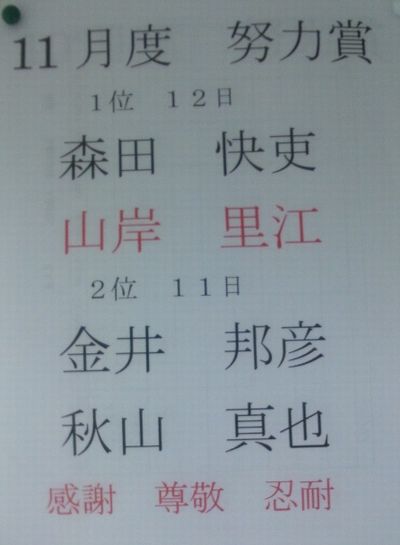 11月度　努力賞
1位　１２日
森田　快吏
山岸　里江
2位　１１日
金井　邦彦
秋山　真也
感謝　尊敬　忍耐